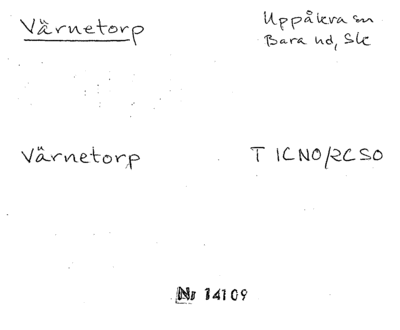 Värnetorp
Uppåkra sn
Bara hd, Sk
Värnetorp
T 1CNO/2CSO
Nr 14109